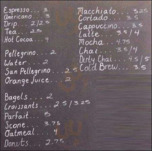 Espresso . . 3
Americano . . 3
Drip . . 2/2.5
Tea . . 2.5
Hot Cocoa . . 4
Pellegrino . . 2
Water . . 2
San Pellegrino . . 2.5
Orange Juice . . 2
Bagels . . 2
Croissants . . 2.5/3.25
Parfait . . 5
Scone . . 3.75
Oatmeal . . 4
Donuts . . 2.75
Macchiato . . 3.25
Cortado . . 3.5
Cappuccino . . 3.5
Latte . . 3.5/4
Mocha . . 4.5
Chai . . 3.5/4
Dirty Chai . . 4.5/5
Cold Brew . . 3.5